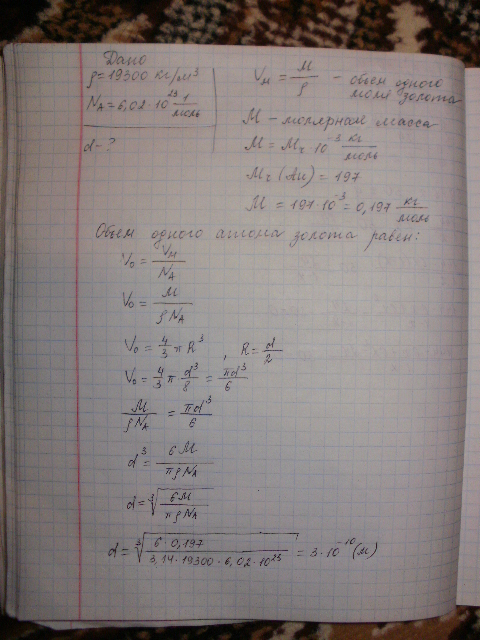 Дано
ρ=19300 кг/м³
N_A=6,02·10²³ 1/моль
d-?
V_M = M/ρ - объем одного
моля золота
M - моллярная масса
M = Mr·10⁻³ кг/моль
Mr(Au) = 197
M = 197·10⁻³ = 0,197 кг/моль
Объем одного атома золота равен:
V₀ = V_M/N_A
V₀ = M/ρN_A
V₀ = 4/3 π R³, R = d/2
V₀ = 4/3 π · d³/8 = πd³/6
M/ρN_A = πd³/6
d³ = 6M/πρN_A
d = ∛(6M/πρN_A)
d = ∛(6·0,197/3,14·19300·6,02·10²³) = 3·10⁻¹⁰ (м)